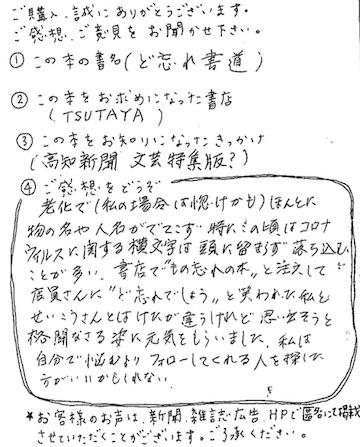 ご購入、誠にありがとうございます。
ご感想、ご意見をお聞かせ下さい。
① この本の書名(ど忘れ書道)
② この本をお求めになった書店
(TSUTAYA)
③ この本をお知りになったきっかけ
(高知新聞 文芸特集版?)
④ ご感想をどうぞ
老化で(私の場合は惚けかも)ほんとに
物の名や人名がでてこず 特にこの頃はコロナ
ウィルスに関する横文字は頭に留まらず落ち込む
ことが多い。書店で"もの忘れの本"と注文して
店員さんに"ど忘れでしょう"と笑われた私と
せいこうさんとはけたが違うけれど思い出そうと
格闘なさる姿に元気をもらいました。私は
自分で悩むよりフォローしてくれる人を探した
方がいいかもしれない
*お客様のお声は、新聞、雑誌広告、HPで匿名にて掲載
させていただくことがございます。ご了承ください。